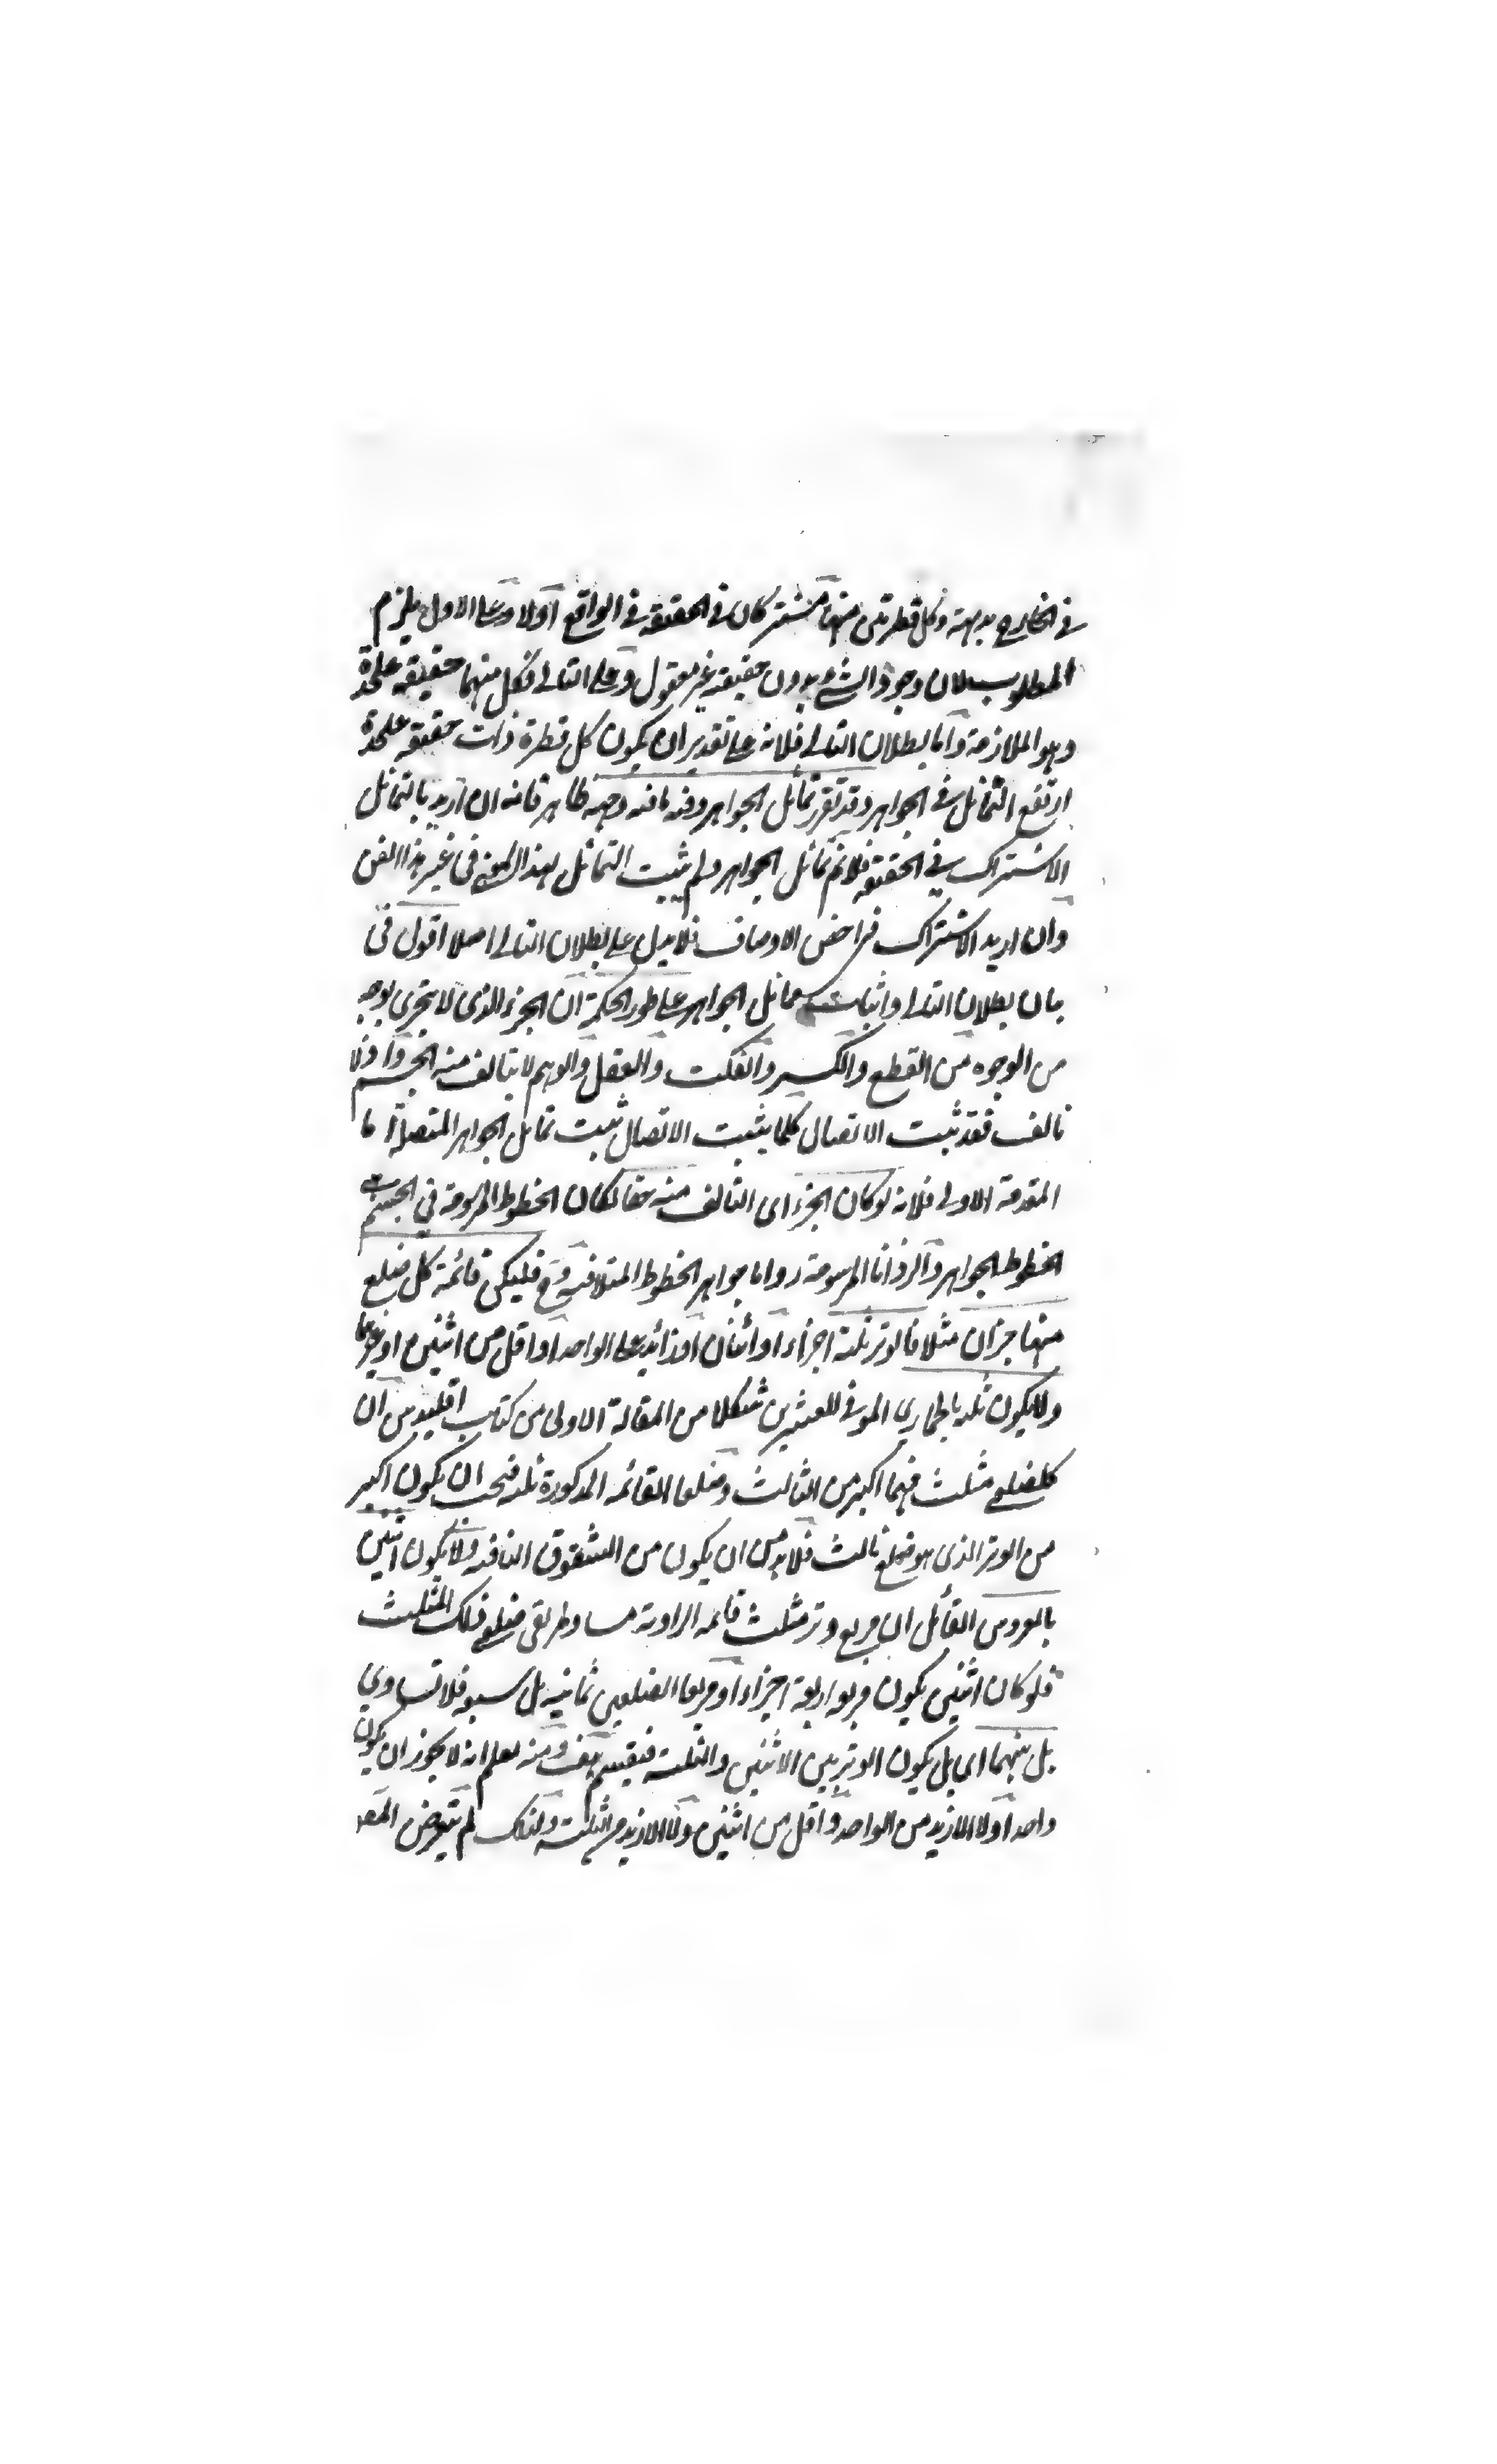 في الخارج بديهة وكل قطرتين منها مشتركان في الحقيقة في الواقع اولا وعلى الاول يلزم
المطلوب لان وجود الشيء بدون حقيقة غير معقول وعلى التالي فكل منهما حقيقة علحدة
وهو الملازمة واما بطلان التالي فلانه على تقدير ان يكون كل قطرة ذات حقيقة علحدة
ارتفع التماثل في الجواهر وقد تقرر تماثل الجواهر وفيه ما فيه وجهه ظاهر فانه ان اريد بالتماثل
الاشتراك في الحقيقة فلانم تماثل الجواهر ولم يثبت التماثل بهذا المعنى في غير هذا الفن
وان اريد الاشتراك في اخص الاوصاف فلا يدل على بطلان التالي اصلا اقول في
بيان بطلان التالي واثبات تماثل الجواهر على طور الحكمة ان الجزء الذي لا يتجزى بوجه
من الوجوه من القطع والكسر والفكت والعقل والوهم لا يتالف منه الجسم واذ لا
تالف فقد ثبت الاتصال كلما يثبت الاتصال ثبت تماثل الجواهر المتصلة اما
المقدمة الاولى فلانه لو كان الجزء اى التالف منه حقا لكان الخطوط المرسومة في الجسم
الخطوط الجواهر والزوايا المرسومة زوايا جواهر الخطوط المتلاقية وح فليكن قائمة كل ضلع
منها جزان مثلا فالوتر ثلثة اجزاء او اثنان او زائد على الواحد او اقل من اثنين او غيرهما
ولا يكون ثلثة بالحماري الموفي للعشرين شكلا من المقالة الاولى من كتاب اقليدس ان
كل ضلعي مثلث فهما اكبر من الثالث وضلعا القائمة المذكورة ثلثة فيجب ان يكون اكبر
من الوتر الذي هو ضلع ثالث فلا بد من ان يكون من الشقوق الباقية ولا يكون اثنين
بالعروس القائل ان مربع وتر مثلث قائمة الزاوية مساو لمربعي ضلعي ذلك المثلث
فلو كان اثنين يكون مربعه اربعة اجزاء او مربعا الضلعين ثمانية بل سبعة فلا تساوي
بل بينهما اى بل يكون الوتر بين الاثنين والثلثة فينقسم هف ومنه يعلم انه لا يجوز ان يكون
واحدا ولا ازيد من الواحد واقل من اثنين ولا الازيد من الثلثة ولذلك لم يتعرض المصـ